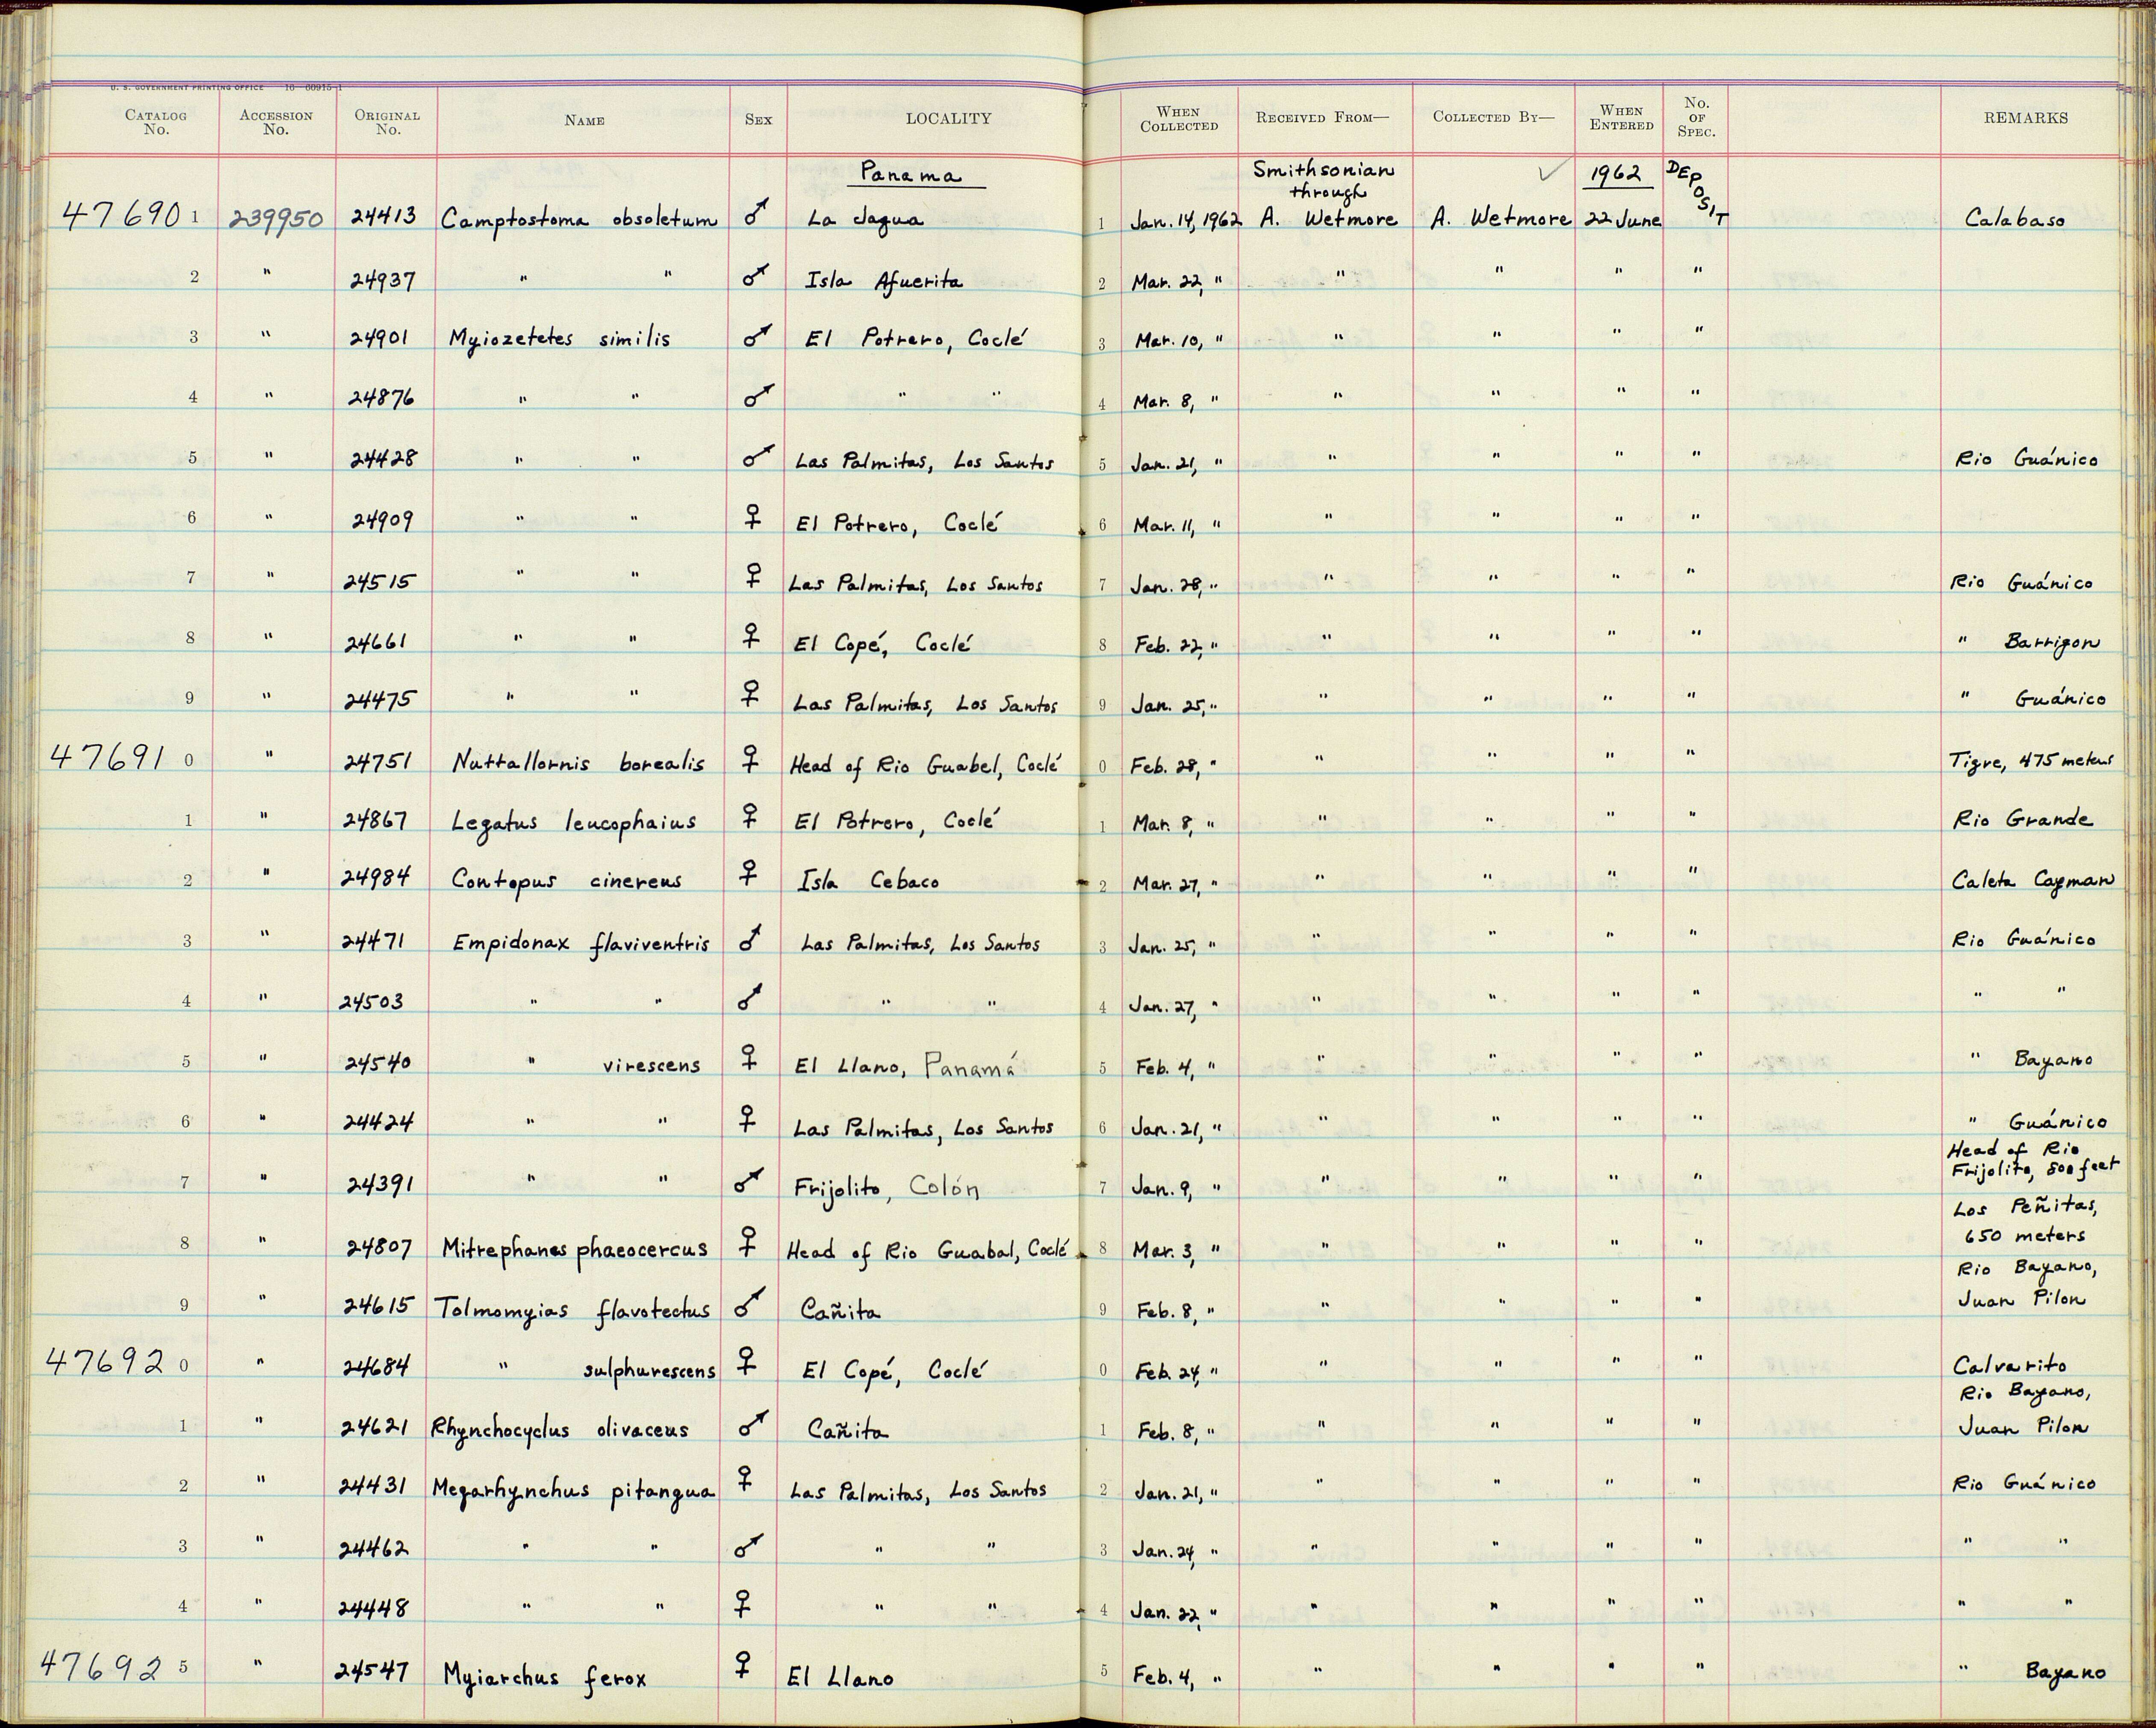 U. S. GOVERNMENT PRINTING OFFICE 16—60915-1
CATALOG No. ACCESSION No. ORIGINAL No. NAME SEX LOCALITY WHEN COLLECTED RECEIVED FROM— COLLECTED BY— WHEN ENTERED No. OF SPEC. REMARKS
Panama Smithsonian ✓ 1962 DEPOSIT
through
476901 239950 24413 Camptostoma obsoletum ♂ La Jagua 1 Jan. 14, 1962 A. Wetmore A. Wetmore 22 June Calabaso
2 " 24937 " " ♂ Isla Afuerita 2 Mar. 22, " " " " "
3 " 24901 Myiozetetes similis ♂ El Potrero, Coclé 3 Mar. 10, " " " " "
4 " 24876 " " ♂ " " 4 Mar. 8, " " " " "
5 " 24428 " " ♂ Las Palmitas, Los Santos 5 Jan. 21, " " " " " Rio Guánico
6 " 24909 " " ♀ El Potrero, Coclé 6 Mar. 11, " " " " "
7 " 24515 " " ♀ Las Palmitas, Los Santos 7 Jan. 28, " " " " " Rio Guánico
8 " 24661 " " ♀ El Copé, Coclé 8 Feb. 22, " " " " " " Barrigon
9 " 24475 " " ♀ Las Palmitas, Los Santos 9 Jan. 25, " " " " " " Guánico
476910 " 24751 Nuttallornis borealis ♀ Head of Rio Guabel, Coclé 0 Feb. 28, " " " " " Tigre, 475 meters
1 " 24867 Legatus leucophaius ♀ El Potrero, Coclé 1 Mar. 8, " " " " " Rio Grande
2 " 24984 Contopus cinereus ♀ Isla Cebaco 2 Mar. 27, " " " " " Caleta Cayman
3 " 24471 Empidonax flaviventris ♂ Las Palmitas, Los Santos 3 Jan. 25, " " " " " Rio Guánico
4 " 24503 " " ♂ " " 4 Jan. 27, " " " " " " "
5 " 24540 " virescens ♀ El Llano, Panamá 5 Feb. 4, " " " " " " Bayano
6 " 24424 " " ♀ Las Palmitas, Los Santos 6 Jan. 21, " " " " " " Guánico
Head of Rio
7 " 24391 " " ♂ Frijolito, Colón 7 Jan. 9, " " " " " Frijolito, 500 feet
Los Peñitas,
8 " 24807 Mitrephanes phaeocercus ♀ Head of Rio Guabal, Coclé 8 Mar. 3, " " " " " 650 meters
Rio Bayano,
9 " 24615 Tolmomyias flavotectus ♂ Cañita 9 Feb. 8, " " " " " Juan Pilon
476920 " 24684 " sulphurescens ♀ El Copé, Coclé 0 Feb. 24, " " " " " Calvarito
Rio Bayano,
1 " 24621 Rhynchocyclus olivaceus ♂ Cañita 1 Feb. 8, " " " " " Juan Pilon
2 " 24431 Megarhynchus pitangua ♀ Las Palmitas, Los Santos 2 Jan. 21, " " " " " Rio Guánico
3 " 24462 " " ♂ " " 3 Jan. 24, " " " " " " "
4 " 24448 " " ♀ " " 4 Jan. 22, " " " " " " "
476925 " 24547 Myiarchus ferox ♀ El Llano 5 Feb. 4, " " " " " " Bayano